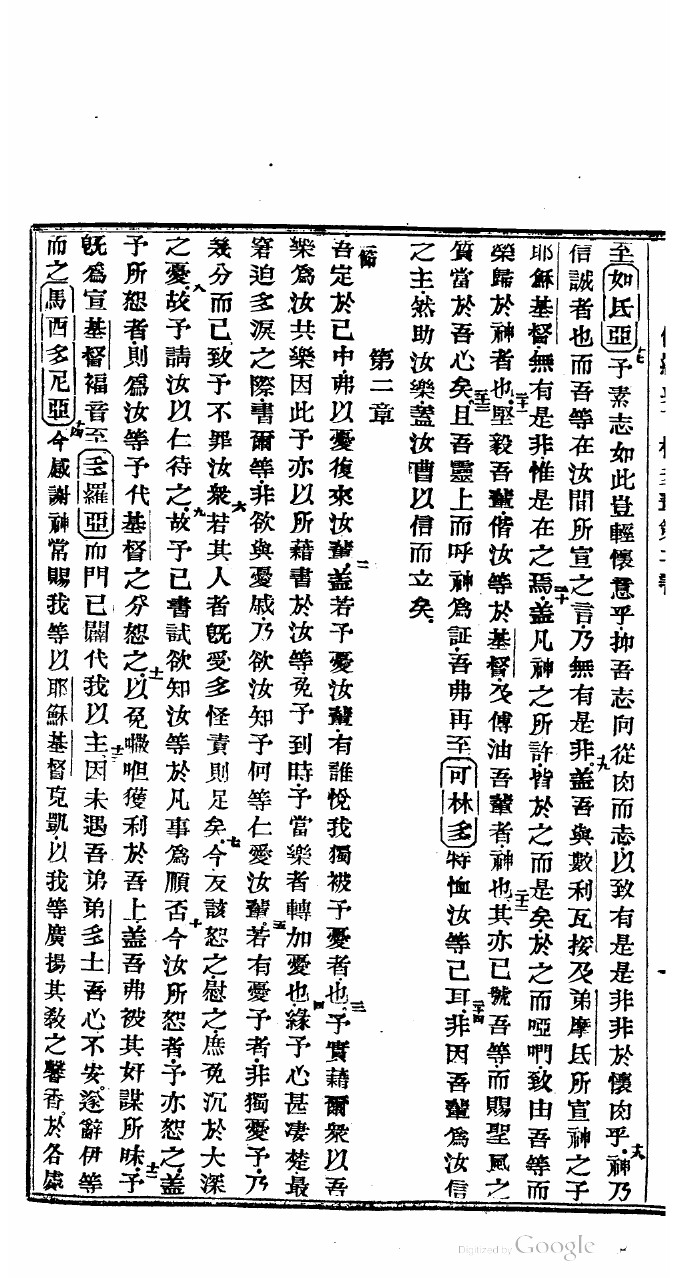 至如氐亞予素志如此豈輕懷意乎抑吾志向從肉而志以致有是是非非於懷肉乎神乃
信誠者也而吾等在汝間所宣之言乃無有是非盖吾與數利瓦按及弟摩氐所宣神之子
耶穌基督無有是非惟是在之焉盖凡神之所許皆於之而是矣於之而啞們致由吾等而
榮歸於神者也堅毅吾輩偕汝等於基督及傅油吾輩者神也其亦已號吾等而賜聖風之
質當於吾心矣且吾靈上而呼神為証吾弗再至可林多特恤汝等己耳非因吾輩為汝信
之主然助汝樂蓋汝曹以信而立矣
第二章
一節
吾定於己中弗以憂復來汝輩盖若予憂汝輩有誰悅我獨被予憂者也予實藉爾衆以吾
樂為汝共樂因此予亦以所藉書於汝等免予到時予當樂者轉加憂也緣予心甚凄楚最
窘迫多淚之際書爾等非欲與憂戚乃欲汝知予何等仁愛汝輩若有憂予者非獨憂予乃
幾分而已致予不罪汝衆若其人者旣受多怪責則足矣今友該恕之慰之庶免沉於大深
之憂故予請汝以仁待之故予已書試欲知汝等於凡事為順否今汝所恕者予亦恕之盖
予所恕者則為汝等予代基督之分恕之以免𠹌呾獲利於吾上盖吾弗被其奸謀所昧予
旣為宣基督福音至𡈼羅亞而門已闢代我以主因未遇吾弟弟多土吾心不安遂辭伊等
而之馬西多尼亞今感謝神常賜我等以耶穌基督克凱以我等廣揚其敎之馨香於各處
Digitized by Google